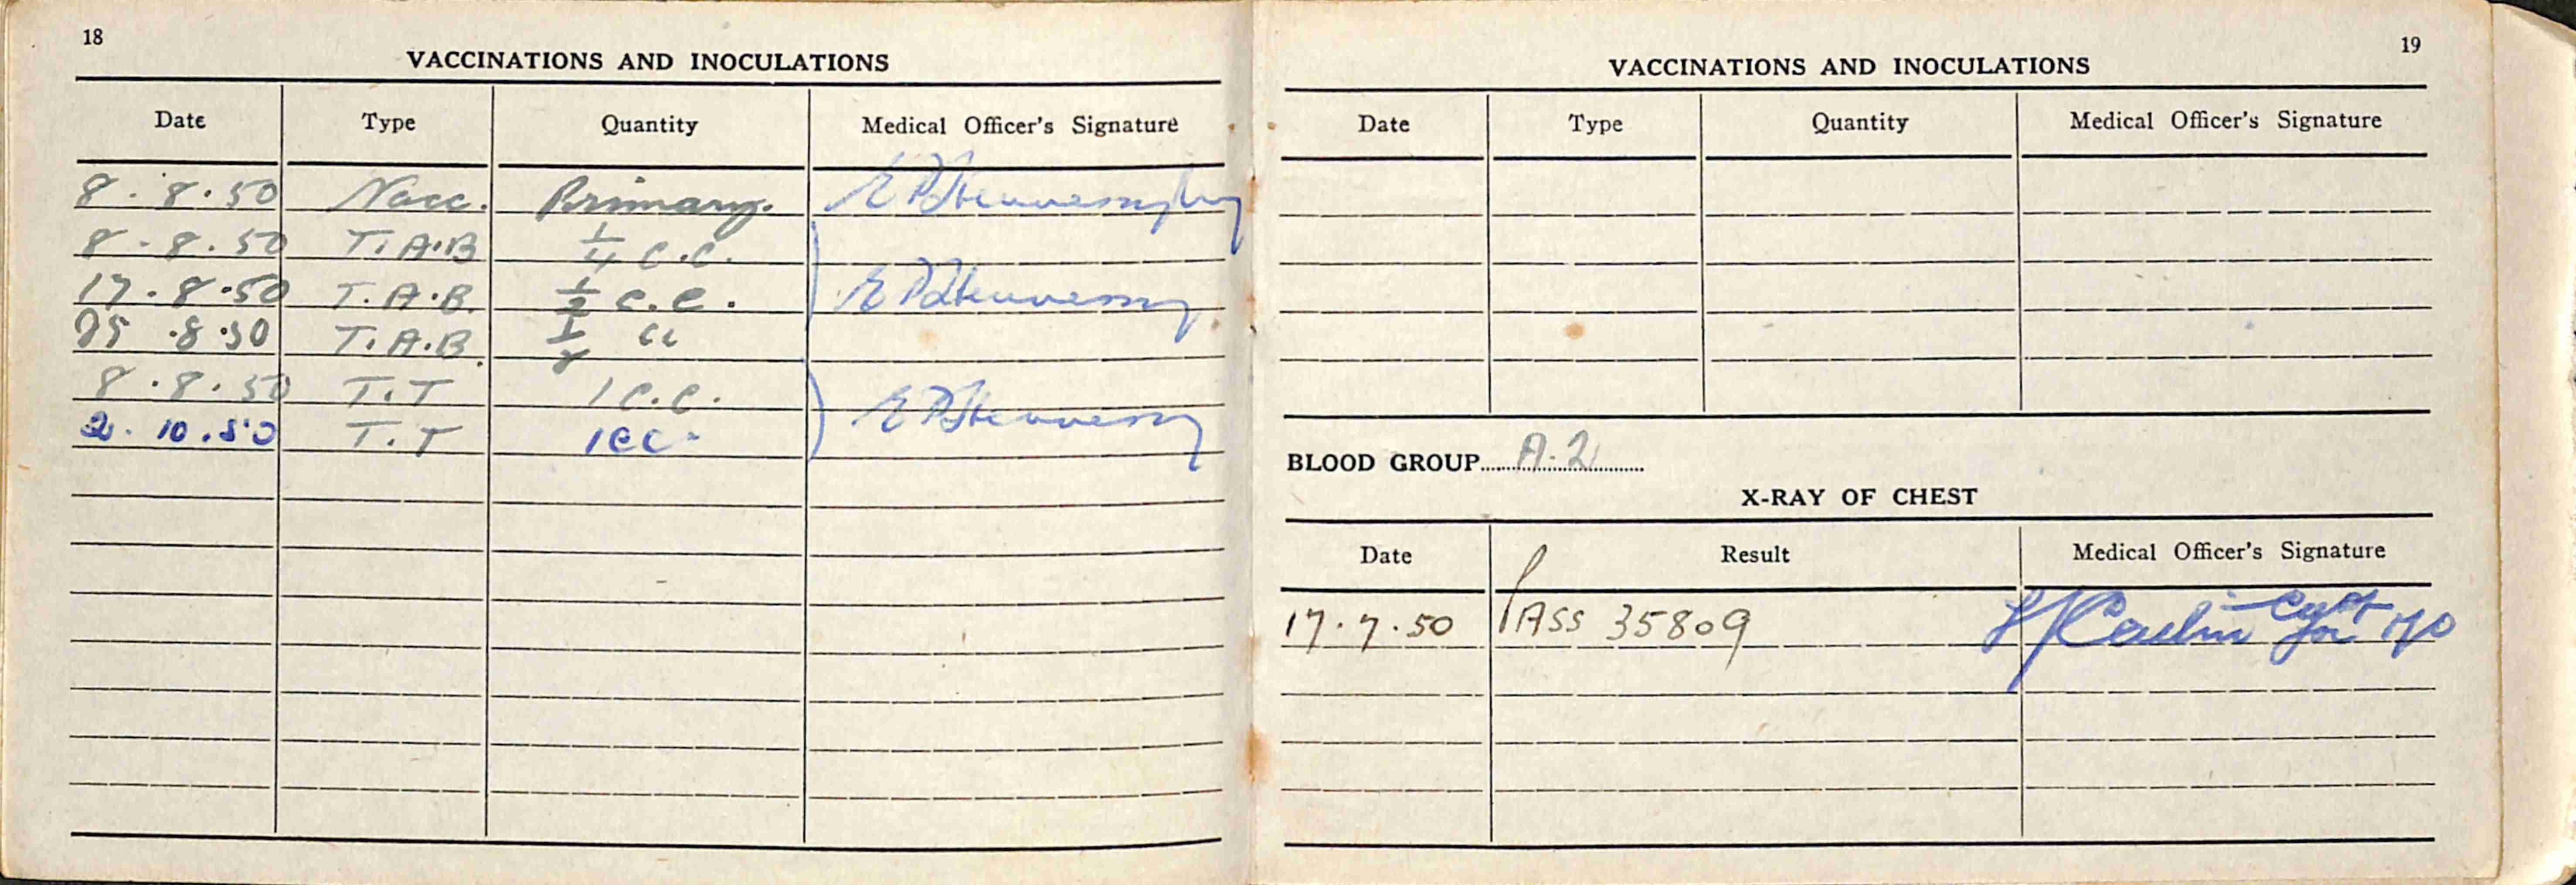 18
VACCINATIONS AND INOCULATIONS
Date Type Quantity Medical Officer's Signature
8.8.50 Vacc. Primary. E P Hennessy
8.8.50 T.A.B 1/4 c.c.
17.8.50 T.A.B. 1/2 c.c. E P Hennessy
25.8.50 T.A.B. 1/2 cc
8.8.50 T.T 1 c.c.
2.10.50 T.T 1cc. E P Hennessy
19
VACCINATIONS AND INOCULATIONS
Date Type Quantity Medical Officer's Signature
BLOOD GROUP A.2
X-RAY OF CHEST
Date Result Medical Officer's Signature
17.7.50 PASS 35809 Capt